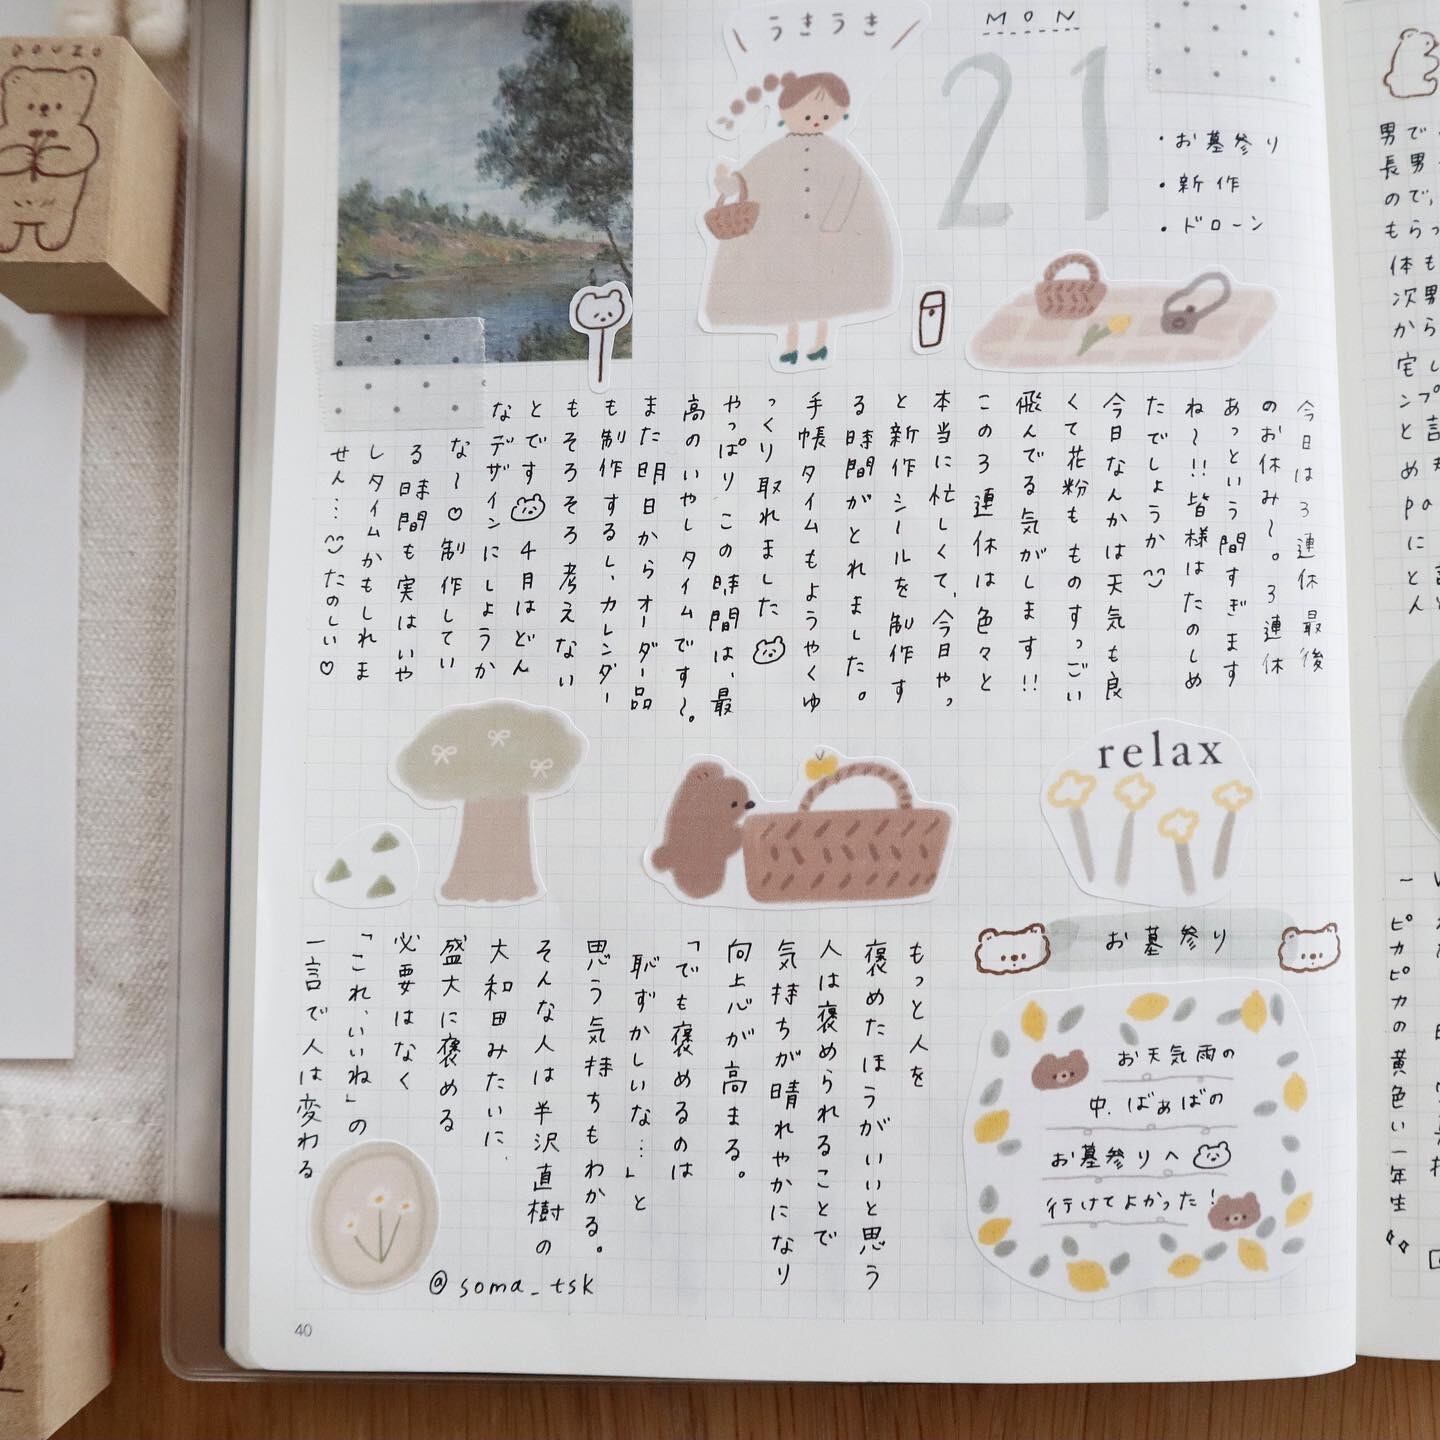 DOUZO
うきうき
MON
21
・お墓参り
・新作
・ドローン
今日は3連休最後
のお休み〜。3連休
あっという間すぎます
ね〜!!皆様はたのしめ
たでしょうか
今日なんかは天気も良
くて花粉もものすっごい
飛んでる気がします!!
この3連休は色々と
本当に忙しくて、今日やっ
と新作シールを制作す
る時間がとれました。
手帳タイムもようやくゆ
っくり取れました
やっぱりこの時間は、最
高のいやしタイムです〜。
また明日からオーダー品
も制作するし、カレンダー
もそろそろ考えない
とです 4月はどん
なデザインにしようか
な〜♡制作してい
る時間も実はいや
しタイムかもしれま
せん…たのしい♡
relax
お墓参り
お天気雨の
中、ばぁばの
お墓参りへ
行けてよかった!
もっと人を
褒めたほうがいいと思う
人は褒められることで
気持ちが晴れやかになり
向上心が高まる。
「でも褒めるのは
恥ずかしいな…」と
思う気持ちもわかる。
そんな人は半沢直樹の
大和田みたいに、
盛大に褒める
必要はなく
「これ、いいね」の
一言で人は変わる
@soma_tsk
40
男で
長男
ので、
もらっ
体も
次男
から
ピカピカの黄色い一年生